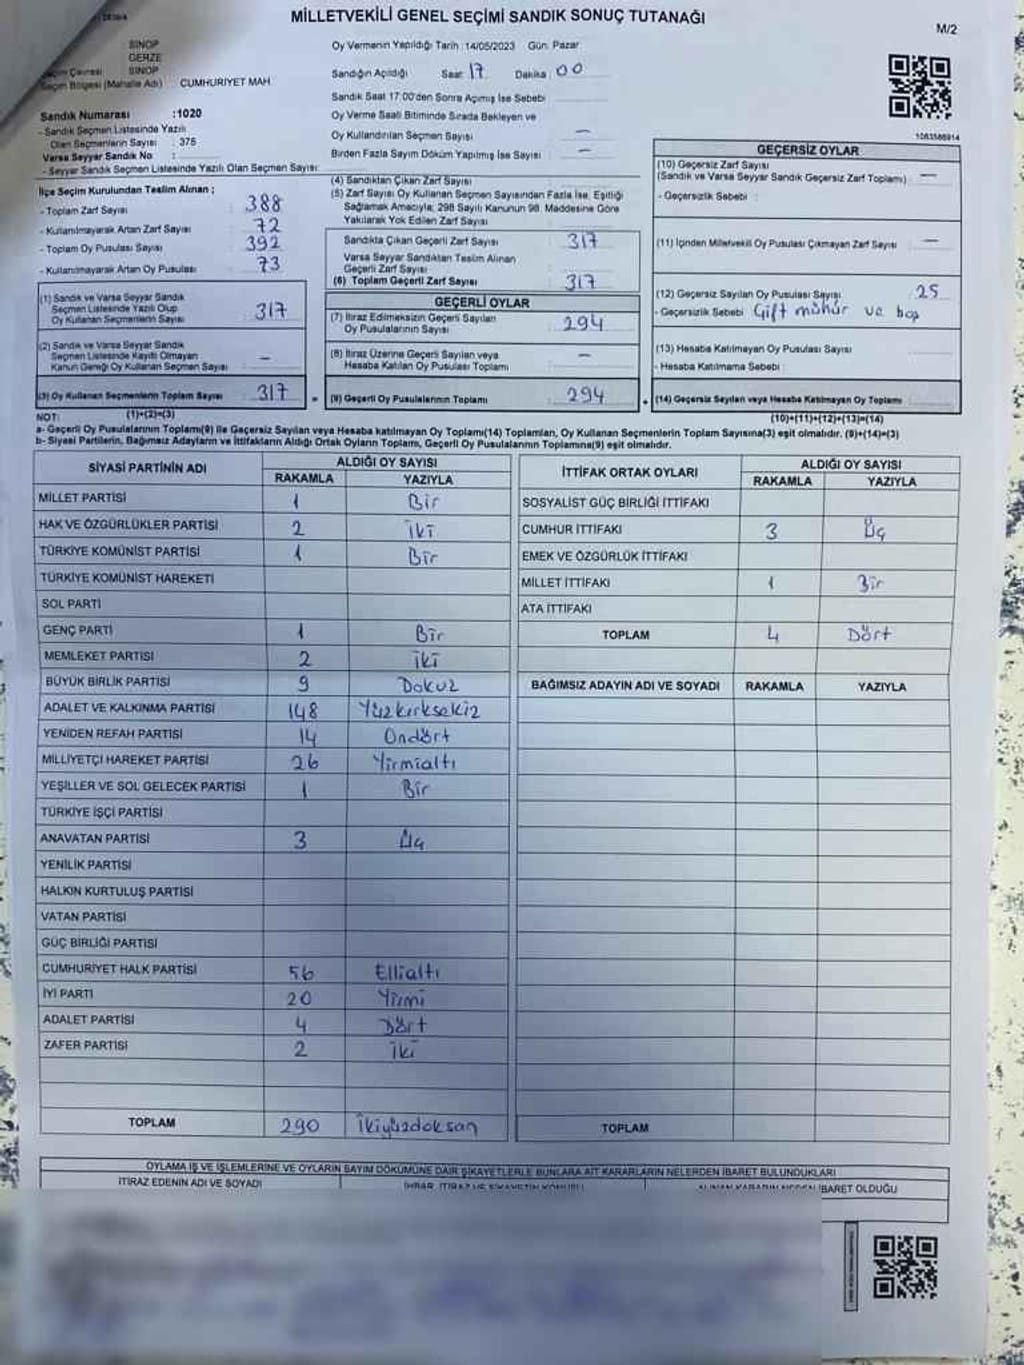 MİLLETVEKİLİ GENEL SEÇİMİ SANDIK SONUÇ TUTANAĞI
M/2
SİNOP
GERZE
Seçim Çevresi SİNOP
Seçim Bölgesi (Mahalle Adı) : CUMHURİYET MAH.
Sandık Numarası :1020
- Sandık Seçmen Listesinde Yazılı
Olan Seçmenlerin Sayısı : 375
Varsa Seyyar Sandık No :
- Seyyar Sandık Seçmen Listesinde Yazılı Olan Seçmen Sayısı:
Oy Vermenin Yapıldığı Tarih :14/05/2023 Gün: Pazar
Sandığın Açıldığı Saat 17 Dakika 00
Sandık Saat 17:00'den Sonra Açımış İse Sebebi
Oy Verme Saati Bitiminde Sırada Bekleyen ve
Oy Kullandırılan Seçmen Sayısı : —
Birden Fazla Sayım Döküm Yapılmış İse Sayısı : —
1083586914
İlçe Seçim Kurulundan Teslim Alınan ;
- Toplam Zarf Sayısı : 388
- Kullanılmayarak Artan Zarf Sayısı : 72
- Toplam Oy Pusulası Sayısı : 392
- Kullanılmayarak Artan Oy Pusulası : 73
(1) Sandık ve Varsa Seyyar Sandık
Seçmen Listesinde Yazılı Olup
Oy Kullanan Seçmenlerin Sayısı : 317
(2) Sandık ve Varsa Seyyar Sandık
Seçmen Listesinde Kayıtlı Olmayan
Kanun Gereği Oy Kullanan Seçmen Sayısı : —
(3) Oy Kullanan Seçmenlerin Toplam Sayısı : 317
(1)+(2)=(3)
(4) Sandıktan Çıkan Zarf Sayısı :
(5) Zarf Sayısı Oy Kullanan Seçmen Sayısından Fazla İse, Eşitliği
Sağlamak Amacıyla; 298 Sayılı Kanunun 98. Maddesine Göre
Yakılarak Yok Edilen Zarf Sayısı :
Sandıkta Çıkan Geçerli Zarf Sayısı : 317
Varsa Seyyar Sandıktan Teslim Alınan
Geçerli Zarf Sayısı :
(6) Toplam Geçerli Zarf Sayısı : 317
GEÇERLİ OYLAR
(7) İtiraz Edilmeksizin Geçerli Sayılan
Oy Pusulalarının Sayısı : 294
(8) İtiraz Üzerine Geçerli Sayılan veya
Hesaba Katılan Oy Pusulası Toplamı : —
(9) Geçerli Oy Pusulalarının Toplamı : 294
GEÇERSİZ OYLAR
(10) Geçersiz Zarf Sayısı
(Sandık ve Varsa Seyyar Sandık Geçersiz Zarf Toplamı) : —
- Geçersizlik Sebebi :
(11) İçinden Milletvekili Oy Pusulası Çıkmayan Zarf Sayısı : —
(12) Geçersiz Sayılan Oy Pusulası Sayısı : 25
- Geçersizlik Sebebi : Çift mühür ve boş
(13) Hesaba Katılmayan Oy Pusulası Sayısı :
- Hesaba Katılmama Sebebi :
(14) Geçersiz Sayılan veya Hesaba Katılmayan Oy Toplamı :
(10)+(11)+(12)+(13)=(14)
NOT:
a- Geçerli Oy Pusulalarının Toplamı(9) ile Geçersiz Sayılan veya Hesaba katılmayan Oy Toplamı(14) Toplamları, Oy Kullanan Seçmenlerin Toplam Sayısına(3) eşit olmalıdır. (9)+(14)=(3)
b- Siyasi Partilerin, Bağımsız Adayların ve İttifakların Aldığı Ortak Oyların Toplamı, Geçerli Oy Pusulalarının Toplamına(9) eşit olmalıdır.
SİYASİ PARTİNİN ADI ALDIĞI OY SAYISI
RAKAMLA YAZIYLA
MİLLET PARTİSİ 1 Bir
HAK VE ÖZGÜRLÜKLER PARTİSİ 2 İki
TÜRKİYE KOMÜNİST PARTİSİ 1 Bir
TÜRKİYE KOMÜNİST HAREKETİ
SOL PARTİ
GENÇ PARTİ 1 Bir
MEMLEKET PARTİSİ 2 İki
BÜYÜK BİRLİK PARTİSİ 9 Dokuz
ADALET VE KALKINMA PARTİSİ 148 Yüzkırksekiz
YENİDEN REFAH PARTİSİ 14 Ondört
MİLLİYETÇİ HAREKET PARTİSİ 26 Yirmialtı
YEŞİLLER VE SOL GELECEK PARTİSİ 1 Bir
TÜRKİYE İŞÇİ PARTİSİ
ANAVATAN PARTİSİ 3 Üç
YENİLİK PARTİSİ
HALKIN KURTULUŞ PARTİSİ
VATAN PARTİSİ
GÜÇ BİRLİĞİ PARTİSİ
CUMHURİYET HALK PARTİSİ 56 Ellialtı
İYİ PARTİ 20 Yirmi
ADALET PARTİSİ 4 Dört
ZAFER PARTİSİ 2 İki
TOPLAM 290 İkiyüzdoksan
İTTİFAK ORTAK OYLARI ALDIĞI OY SAYISI
RAKAMLA YAZIYLA
SOSYALİST GÜÇ BİRLİĞİ İTTİFAKI
CUMHUR İTTİFAKI 3 Üç
EMEK VE ÖZGÜRLÜK İTTİFAKI
MİLLET İTTİFAKI 1 Bir
ATA İTTİFAKI
TOPLAM 4 Dört
BAĞIMSIZ ADAYIN ADI VE SOYADI RAKAMLA YAZIYLA
TOPLAM
OYLAMA İŞ VE İŞLEMLERİNE VE OYLARIN SAYIM DÖKÜMÜNE DAİR ŞİKAYETLERLE BUNLARA AİT KARARLARIN NELERDEN İBARET BULUNDUKLARI
İTİRAZ EDENİN ADI VE SOYADI İHBAR, İTİRAZ VE ŞİKAYETİN KONUSU ALINAN KARARIN NEDEN İBARET OLDUĞU